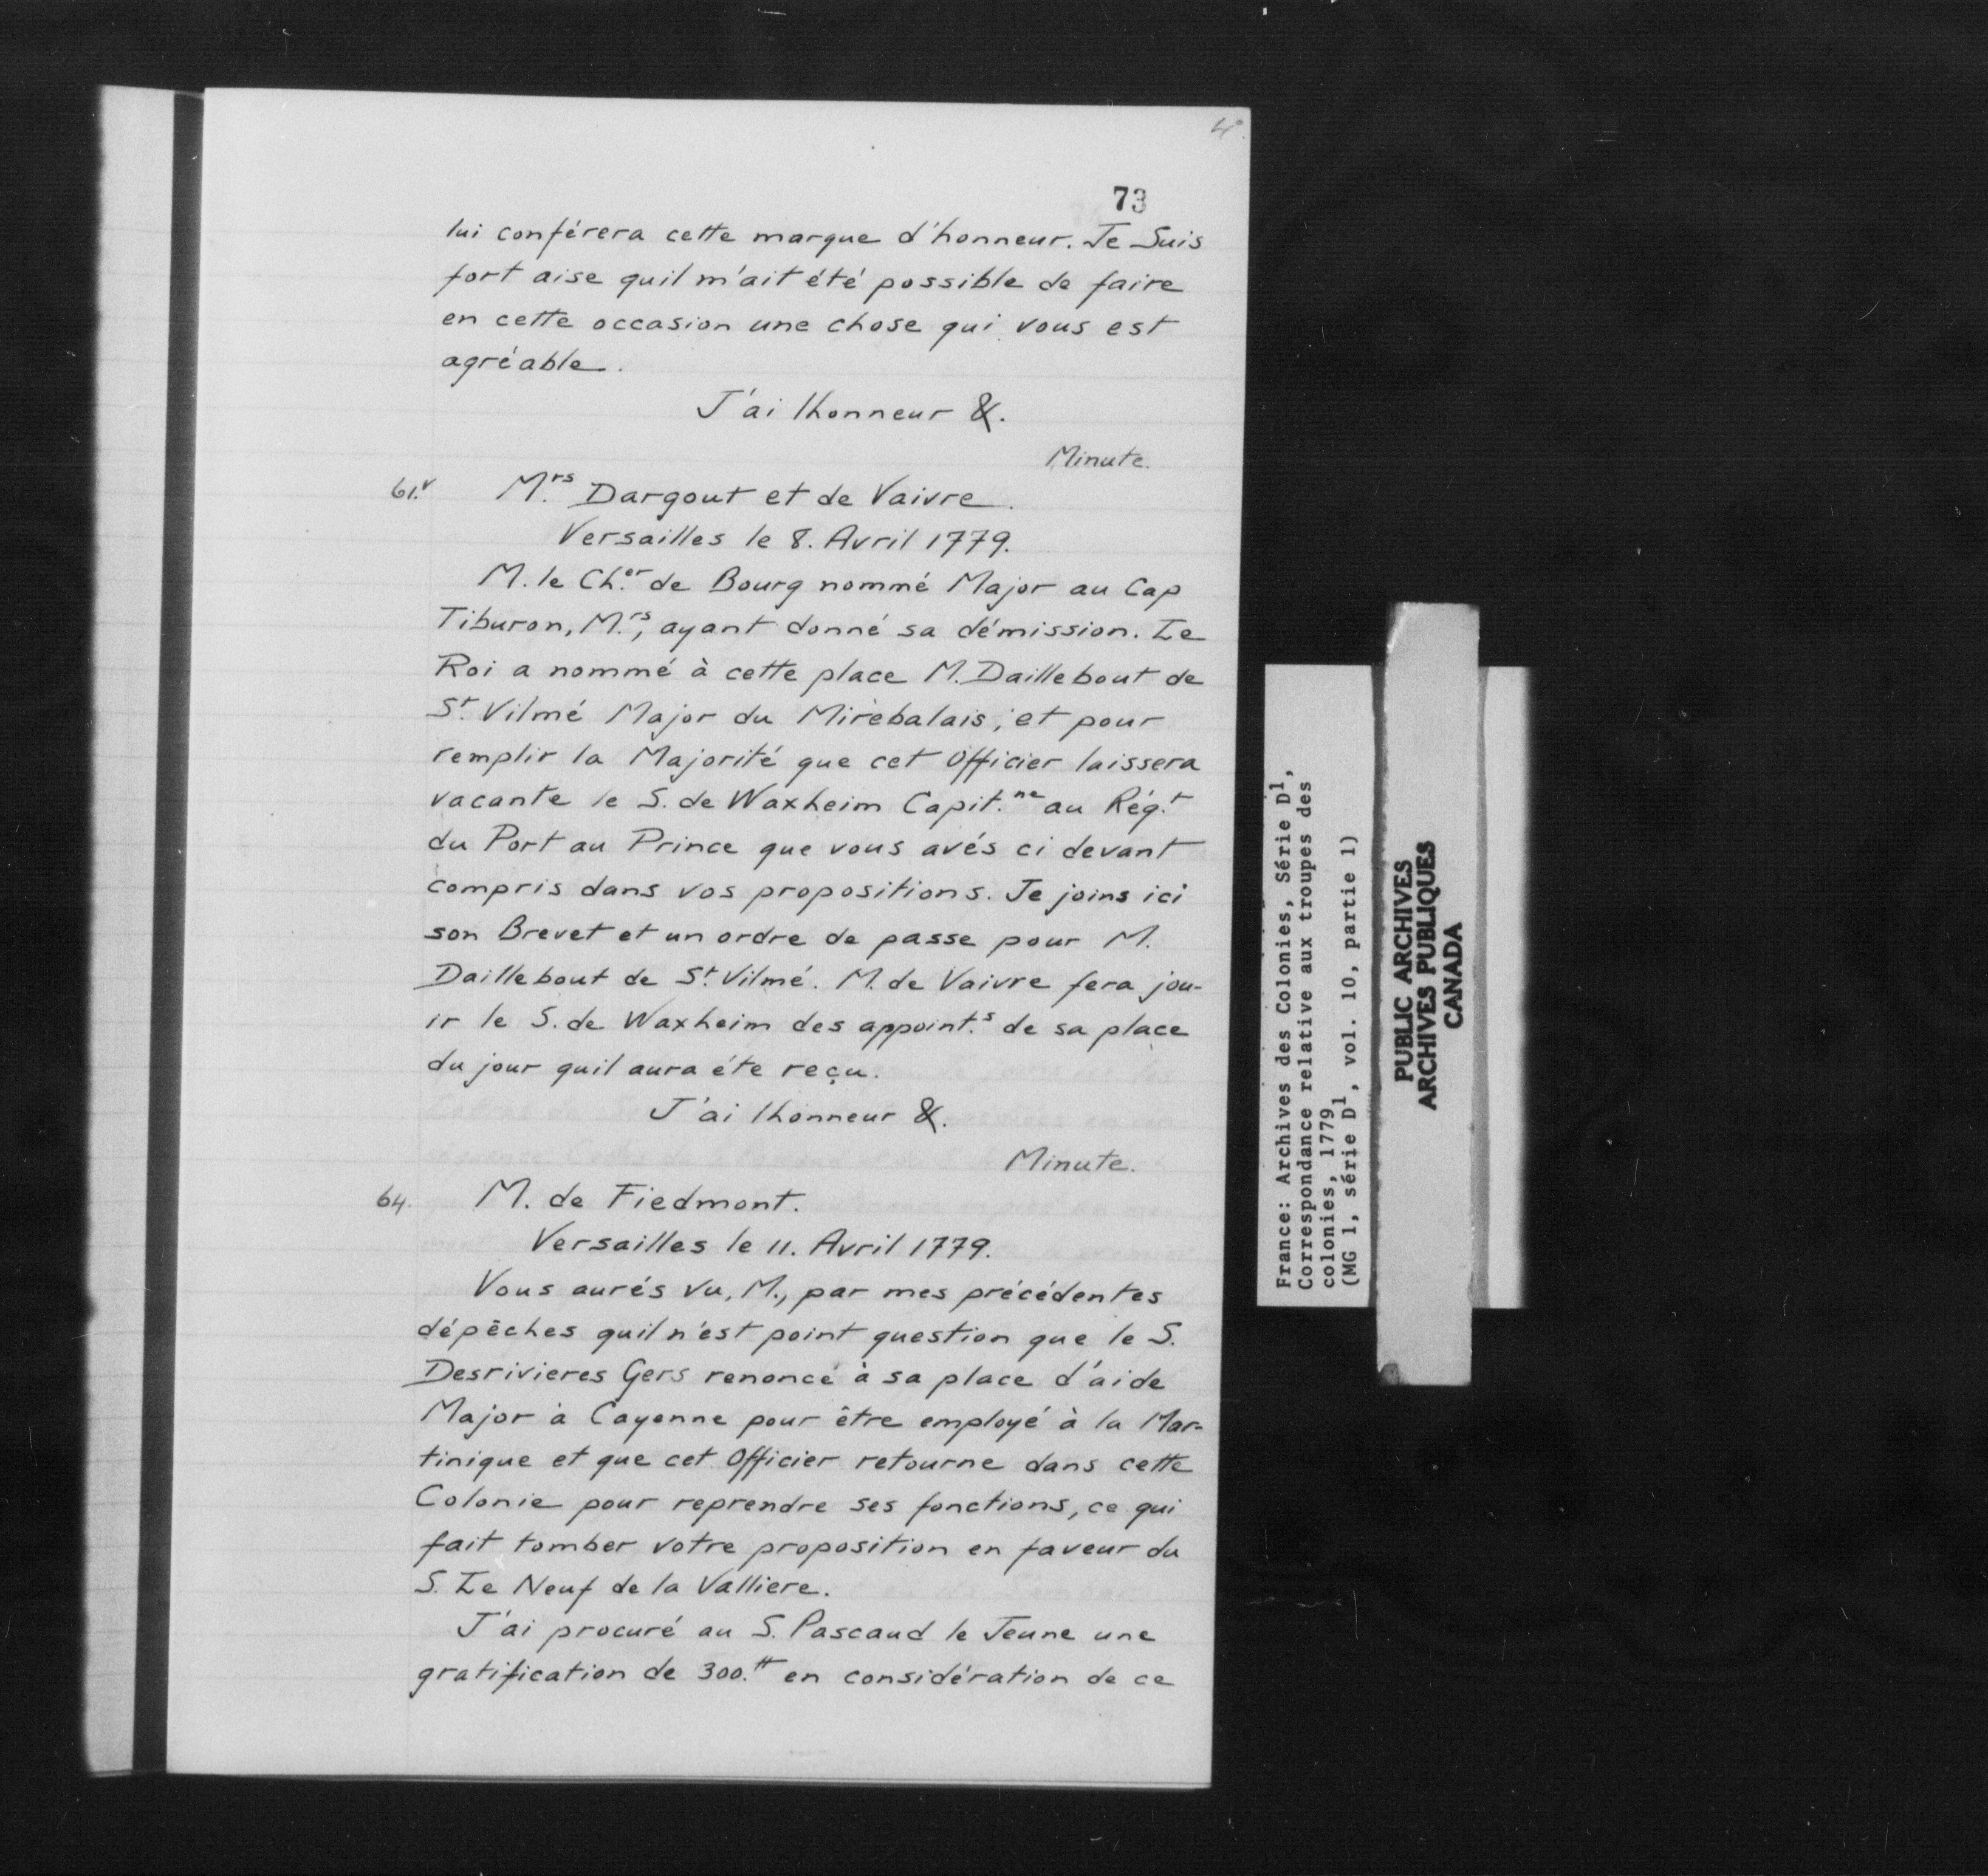 4°.
73
lui conférera cette marque d'honneur. Je Suis
fort aise quil m'ait été possible de faire
en cette occasion une chose qui vous est
agréable.
J'ai lhonneur &.
Minute.
61.v M.rs Dargout et de Vaivre.
Versailles le 8. Avril 1779.
M. le Ch.er de Bourg nommé Major au Cap
Tiburon, M.rs, ayant donné sa démission. Le
Roi a nommé à cette place M. Daillebout de
St. Vilmé Major du Mirebalais; et pour
remplir la Majorité que cet Officier laissera
vacante le S. de Waxheim Capit.ne au Rég.t
du Port au Prince que vous avés ci devant
compris dans vos propositions. Je joins ici
son Brevet et un ordre de passe pour M.
Daillebout de St. Vilmé. M. de Vaivre fera jou-
ir le S. de Waxheim des appoint.s de sa place
du jour quil aura éte reçu.
J'ai lhonneur &.
Minute.
64. M. de Fiedmont.
Versailles le 11. Avril 1779.
Vous aurés vu, M., par mes précédentes
dépêches quil n'est point question que le S.
Desrivieres Gers renonce à sa place d'aide
Major à Cayenne pour être employé à la Mar-
tinique et que cet Officier retourne dans cette
Colonie pour reprendre ses fonctions, ce qui
fait tomber votre proposition en faveur du
S. Le Neuf de la Valliere.
J'ai procuré au S. Pascaud le Jeune une
gratification de 300.tt en considération de ce
France: Archives des Colonies, Série D1,
Correspondance relative aux troupes des
colonies, 1779
(MG 1, série D1, vol. 10, partie 1)
PUBLIC ARCHIVES
ARCHIVES PUBLIQUES
CANADA